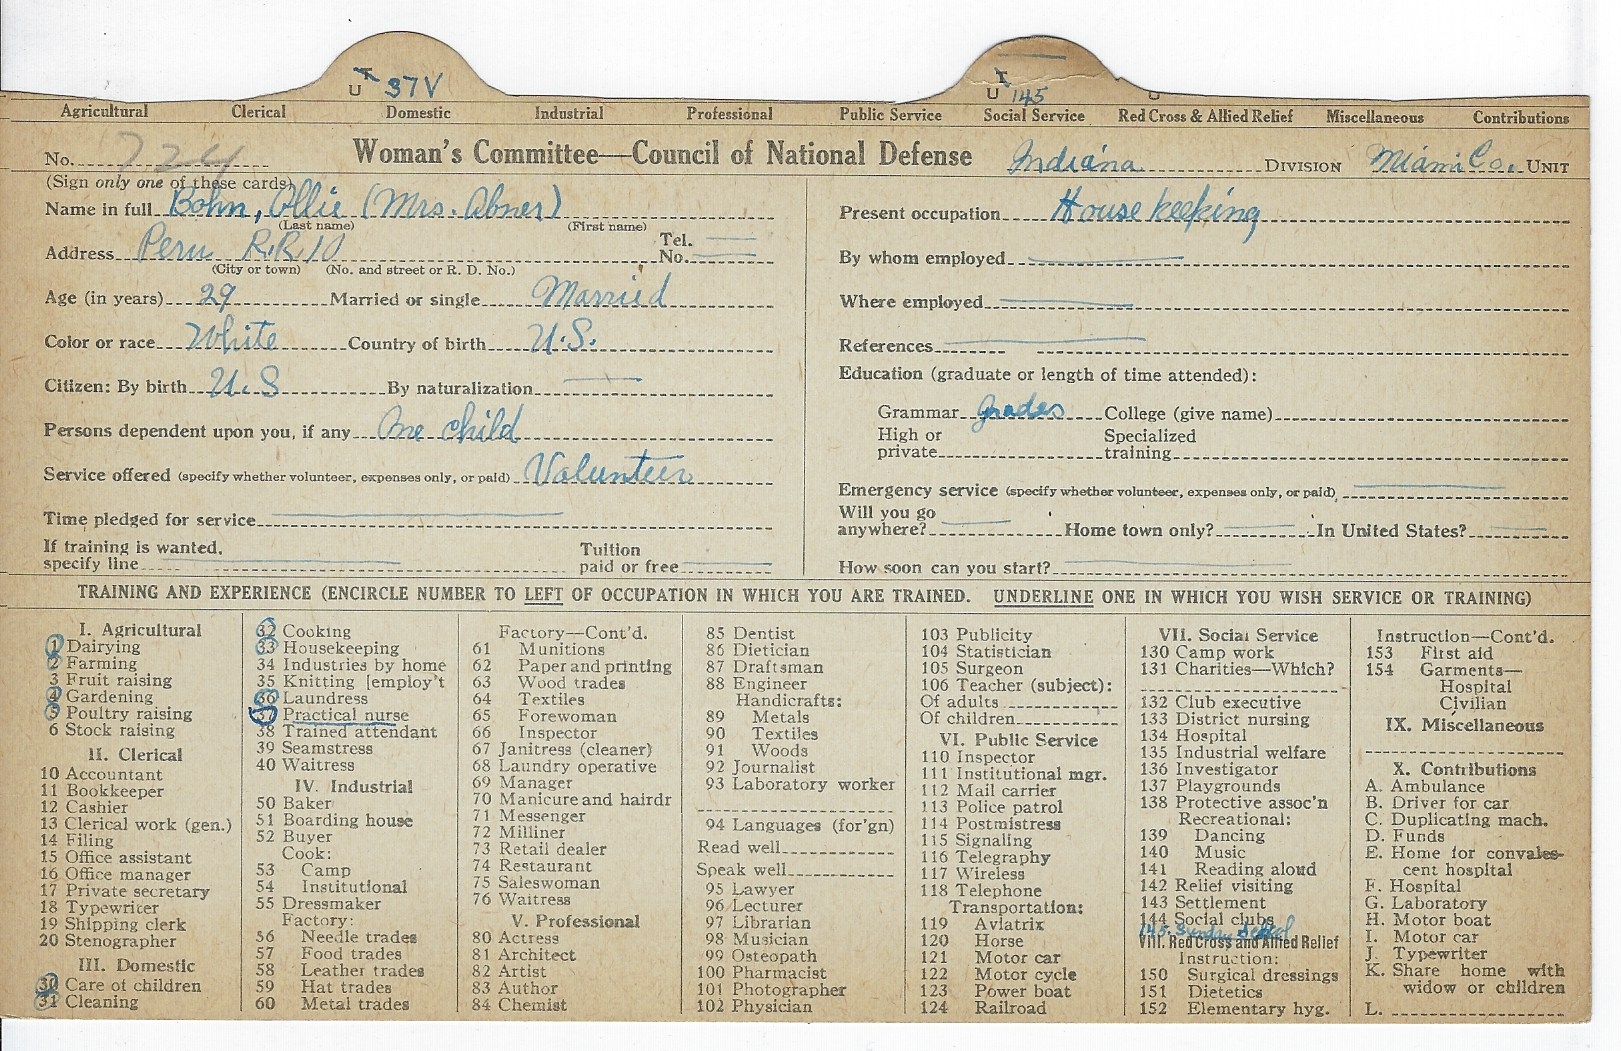 U 37V U 145
Agricultural Clerical Domestic Industrial Professional Public Service Social Service Red Cross & Allied Relief Miscellaneous Contributions
No. 724 Woman's Committee—Council of National Defense Indiana DIVISION Miami Co. UNIT
(Sign only one of these cards)
Name in full Bohn, Ollie (Mrs. Abner)
(Last name) (First name)
Address Peru R.R. 10 Tel. No.
(City or town) (No. and street or R. D. No.)
Age (in years) 29 Married or single Married
Color or race White Country of birth U.S.
Citizen: By birth U.S By naturalization
Persons dependent upon you, if any One child
Service offered (specify whether volunteer, expenses only, or paid) Volunteer
Time pledged for service
If training is wanted, specify line Tuition paid or free
Present occupation House keeping
By whom employed
Where employed
References
Education (graduate or length of time attended):
Grammar grades College (give name)
High or private Specialized training
Emergency service (specify whether volunteer, expenses only, or paid)
Will you go anywhere? Home town only? In United States?
How soon can you start?
TRAINING AND EXPERIENCE (ENCIRCLE NUMBER TO LEFT OF OCCUPATION IN WHICH YOU ARE TRAINED. UNDERLINE ONE IN WHICH YOU WISH SERVICE OR TRAINING)
I. Agricultural
1 Dairying
2 Farming
3 Fruit raising
4 Gardening
5 Poultry raising
6 Stock raising
II. Clerical
10 Accountant
11 Bookkeeper
12 Cashier
13 Clerical work (gen.)
14 Filing
15 Office assistant
16 Office manager
17 Private secretary
18 Typewriter
19 Shipping clerk
20 Stenographer
III. Domestic
30 Care of children
31 Cleaning
32 Cooking
33 Housekeeping
34 Industries by home
35 Knitting [employ't
36 Laundress
37 Practical nurse
38 Trained attendant
39 Seamstress
40 Waitress
IV. Industrial
50 Baker
51 Boarding house
52 Buyer
Cook:
53 Camp
54 Institutional
55 Dressmaker
Factory:
56 Needle trades
57 Food trades
58 Leather trades
59 Hat trades
60 Metal trades
Factory—Cont'd.
61 Munitions
62 Paper and printing
63 Wood trades
64 Textiles
65 Forewoman
66 Inspector
67 Janitress (cleaner)
68 Laundry operative
69 Manager
70 Manicure and hairdr
71 Messenger
72 Milliner
73 Retail dealer
74 Restaurant
75 Saleswoman
76 Waitress
V. Professional
80 Actress
81 Architect
82 Artist
83 Author
84 Chemist
85 Dentist
86 Dietician
87 Draftsman
88 Engineer
Handicrafts:
89 Metals
90 Textiles
91 Woods
92 Journalist
93 Laboratory worker
94 Languages (for'gn)
Read well
Speak well
95 Lawyer
96 Lecturer
97 Librarian
98 Musician
99 Osteopath
100 Pharmacist
101 Photographer
102 Physician
103 Publicity
104 Statistician
105 Surgeon
106 Teacher (subject):
Of adults
Of children
VI. Public Service
110 Inspector
111 Institutional mgr.
112 Mail carrier
113 Police patrol
114 Postmistress
115 Signaling
116 Telegraphy
117 Wireless
118 Telephone
Transportation:
119 Aviatrix
120 Horse
121 Motor car
122 Motor cycle
123 Power boat
124 Railroad
VII. Social Service
130 Camp work
131 Charities—Which?
132 Club executive
133 District nursing
134 Hospital
135 Industrial welfare
136 Investigator
137 Playgrounds
138 Protective assoc'n
Recreational:
139 Dancing
140 Music
141 Reading aloud
142 Relief visiting
143 Settlement
144 Social clubs
145 Sunday School
VIII. Red Cross and Allied Relief
Instruction:
150 Surgical dressings
151 Dietetics
152 Elementary hyg.
Instruction—Cont'd.
153 First aid
154 Garments—
Hospital
Civilian
IX. Miscellaneous
X. Contributions
A. Ambulance
B. Driver for car
C. Duplicating mach.
D. Funds
E. Home for convales-
cent hospital
F. Hospital
G. Laboratory
H. Motor boat
I. Motor car
J. Typewriter
K. Share home with
widow or children
L.